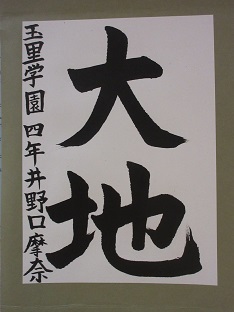 大地
玉里学園 四年 井野口摩奈